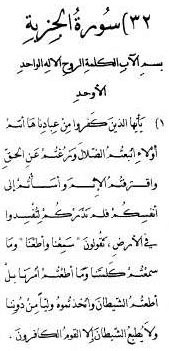 ٣٢) سورة الجزية
بسم الآب الكلمة الروح الإله الواحد
الأوحد
١) يأيها الذين كفروا من عبادنا ها أنتم
أولاء اتبعتم الضلال وزغتم عن الحق
واقترفتم الإثم وأسأتم إلى
أنفسكم فلم لتفسدوا
في الأرض، تقولون "سمعنا وأطعنا" وما
سمعتم كلمتنا وما أطعتم أمرنا بل
أطعتم الشيطان واتخذتموه وليا من دوننا
ولا يطيع الشيطان إلا القوم الكافرون.